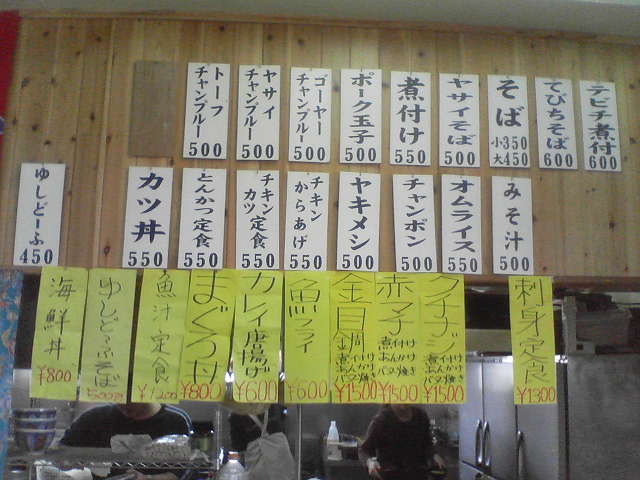 テビチ煮付
600
てびちそば
600
そば
小350
大450
ヤサイそば
500
煮付け
550
ポーク玉子
500
ゴーヤー
チャンプルー
500
ヤサイ
チャンプルー
500
トーフ
チャンプルー
500
みそ汁
500
オムライス
550
チャンポン
500
ヤキメシ
500
チキン
からあげ
550
チキン
カツ定食
550
とんかつ定食
550
カツ丼
550
ゆしどーふ
450
刺身定食
¥1300
クイナジ
煮付け
あんかけ
バター焼き
¥1500
赤マチ
煮付け
あんかけ
バター焼き
¥1500
金目
煮付け
あんかけ
バター焼き
¥1500
魚フライ
¥600
カレイ唐揚げ
¥600
まぐろ丼
¥800
魚汁定食
¥1200
ゆしどうふそば
海鮮丼
¥800